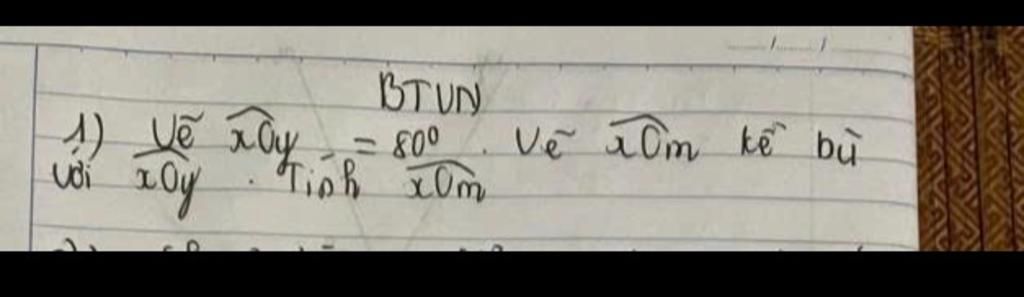 BTVN
1) Vẽ xOy = 80⁰. Vẽ xOm kề bù
với xOy. Tính xOm